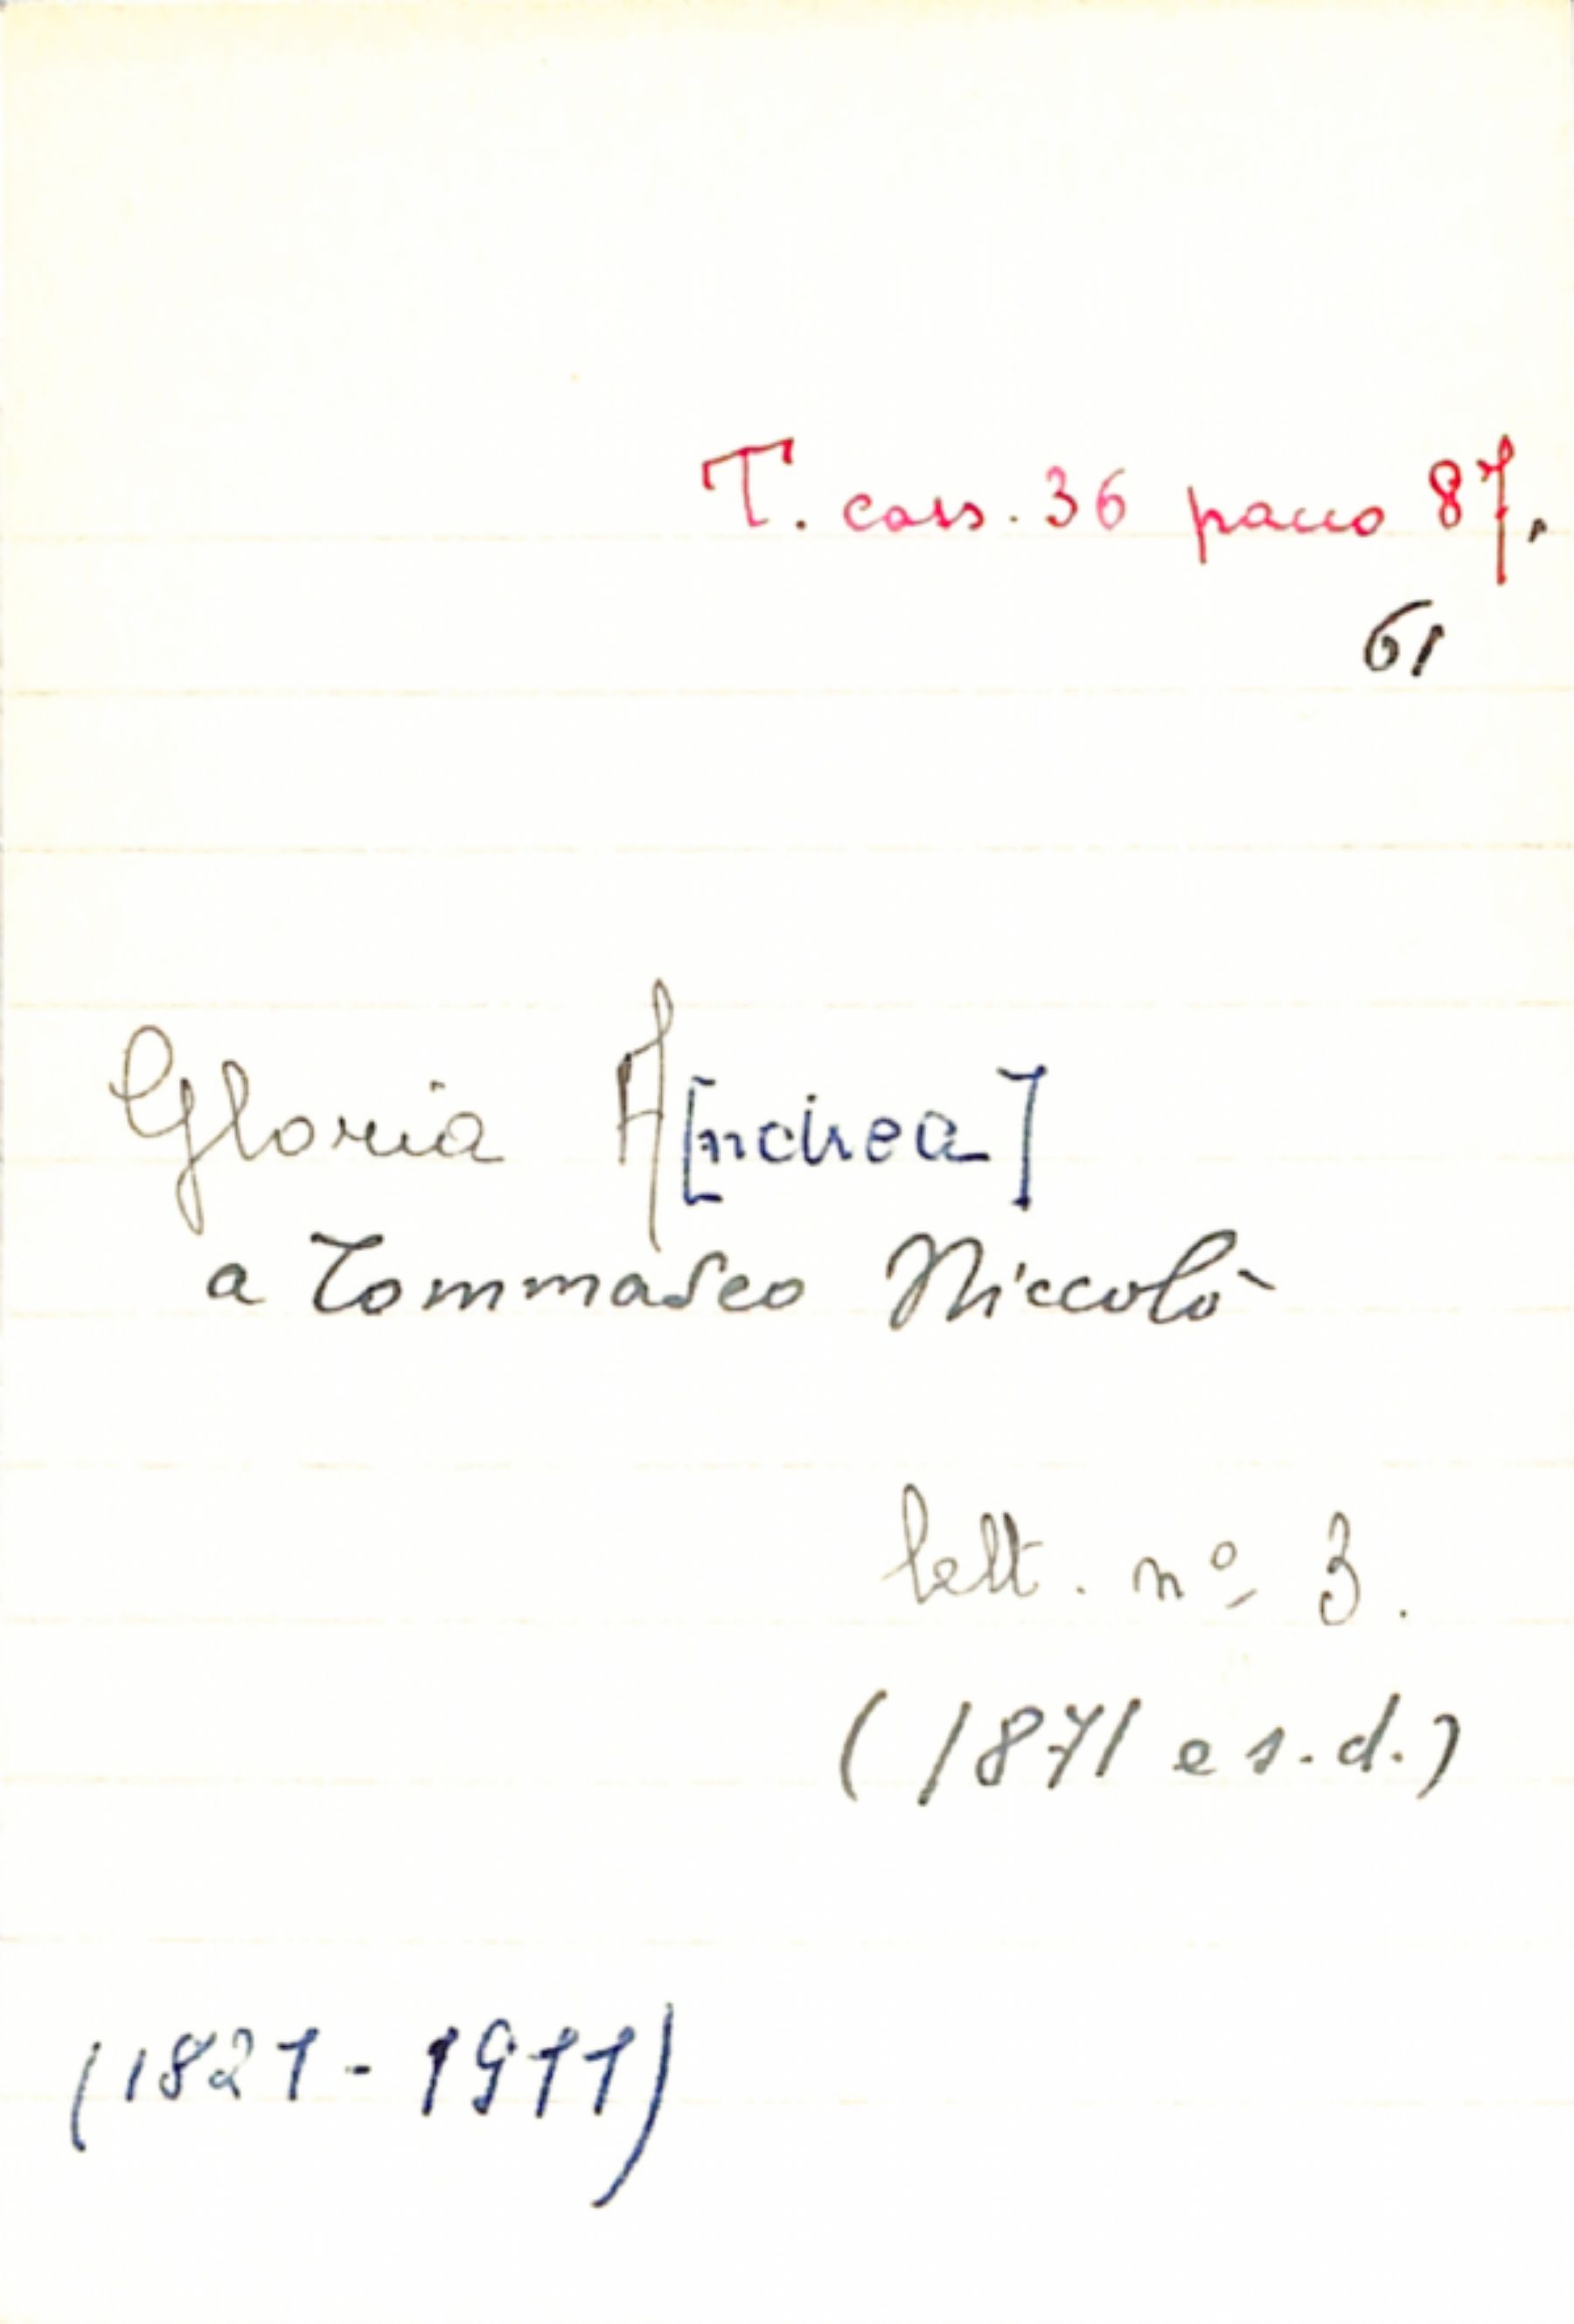 T. cass. 36 pacco 87.
61
Gloria A[ndrea]
a Tommaseo Niccolò
lett. nº 3.
(1871 e s.d.)
(1821-1911)